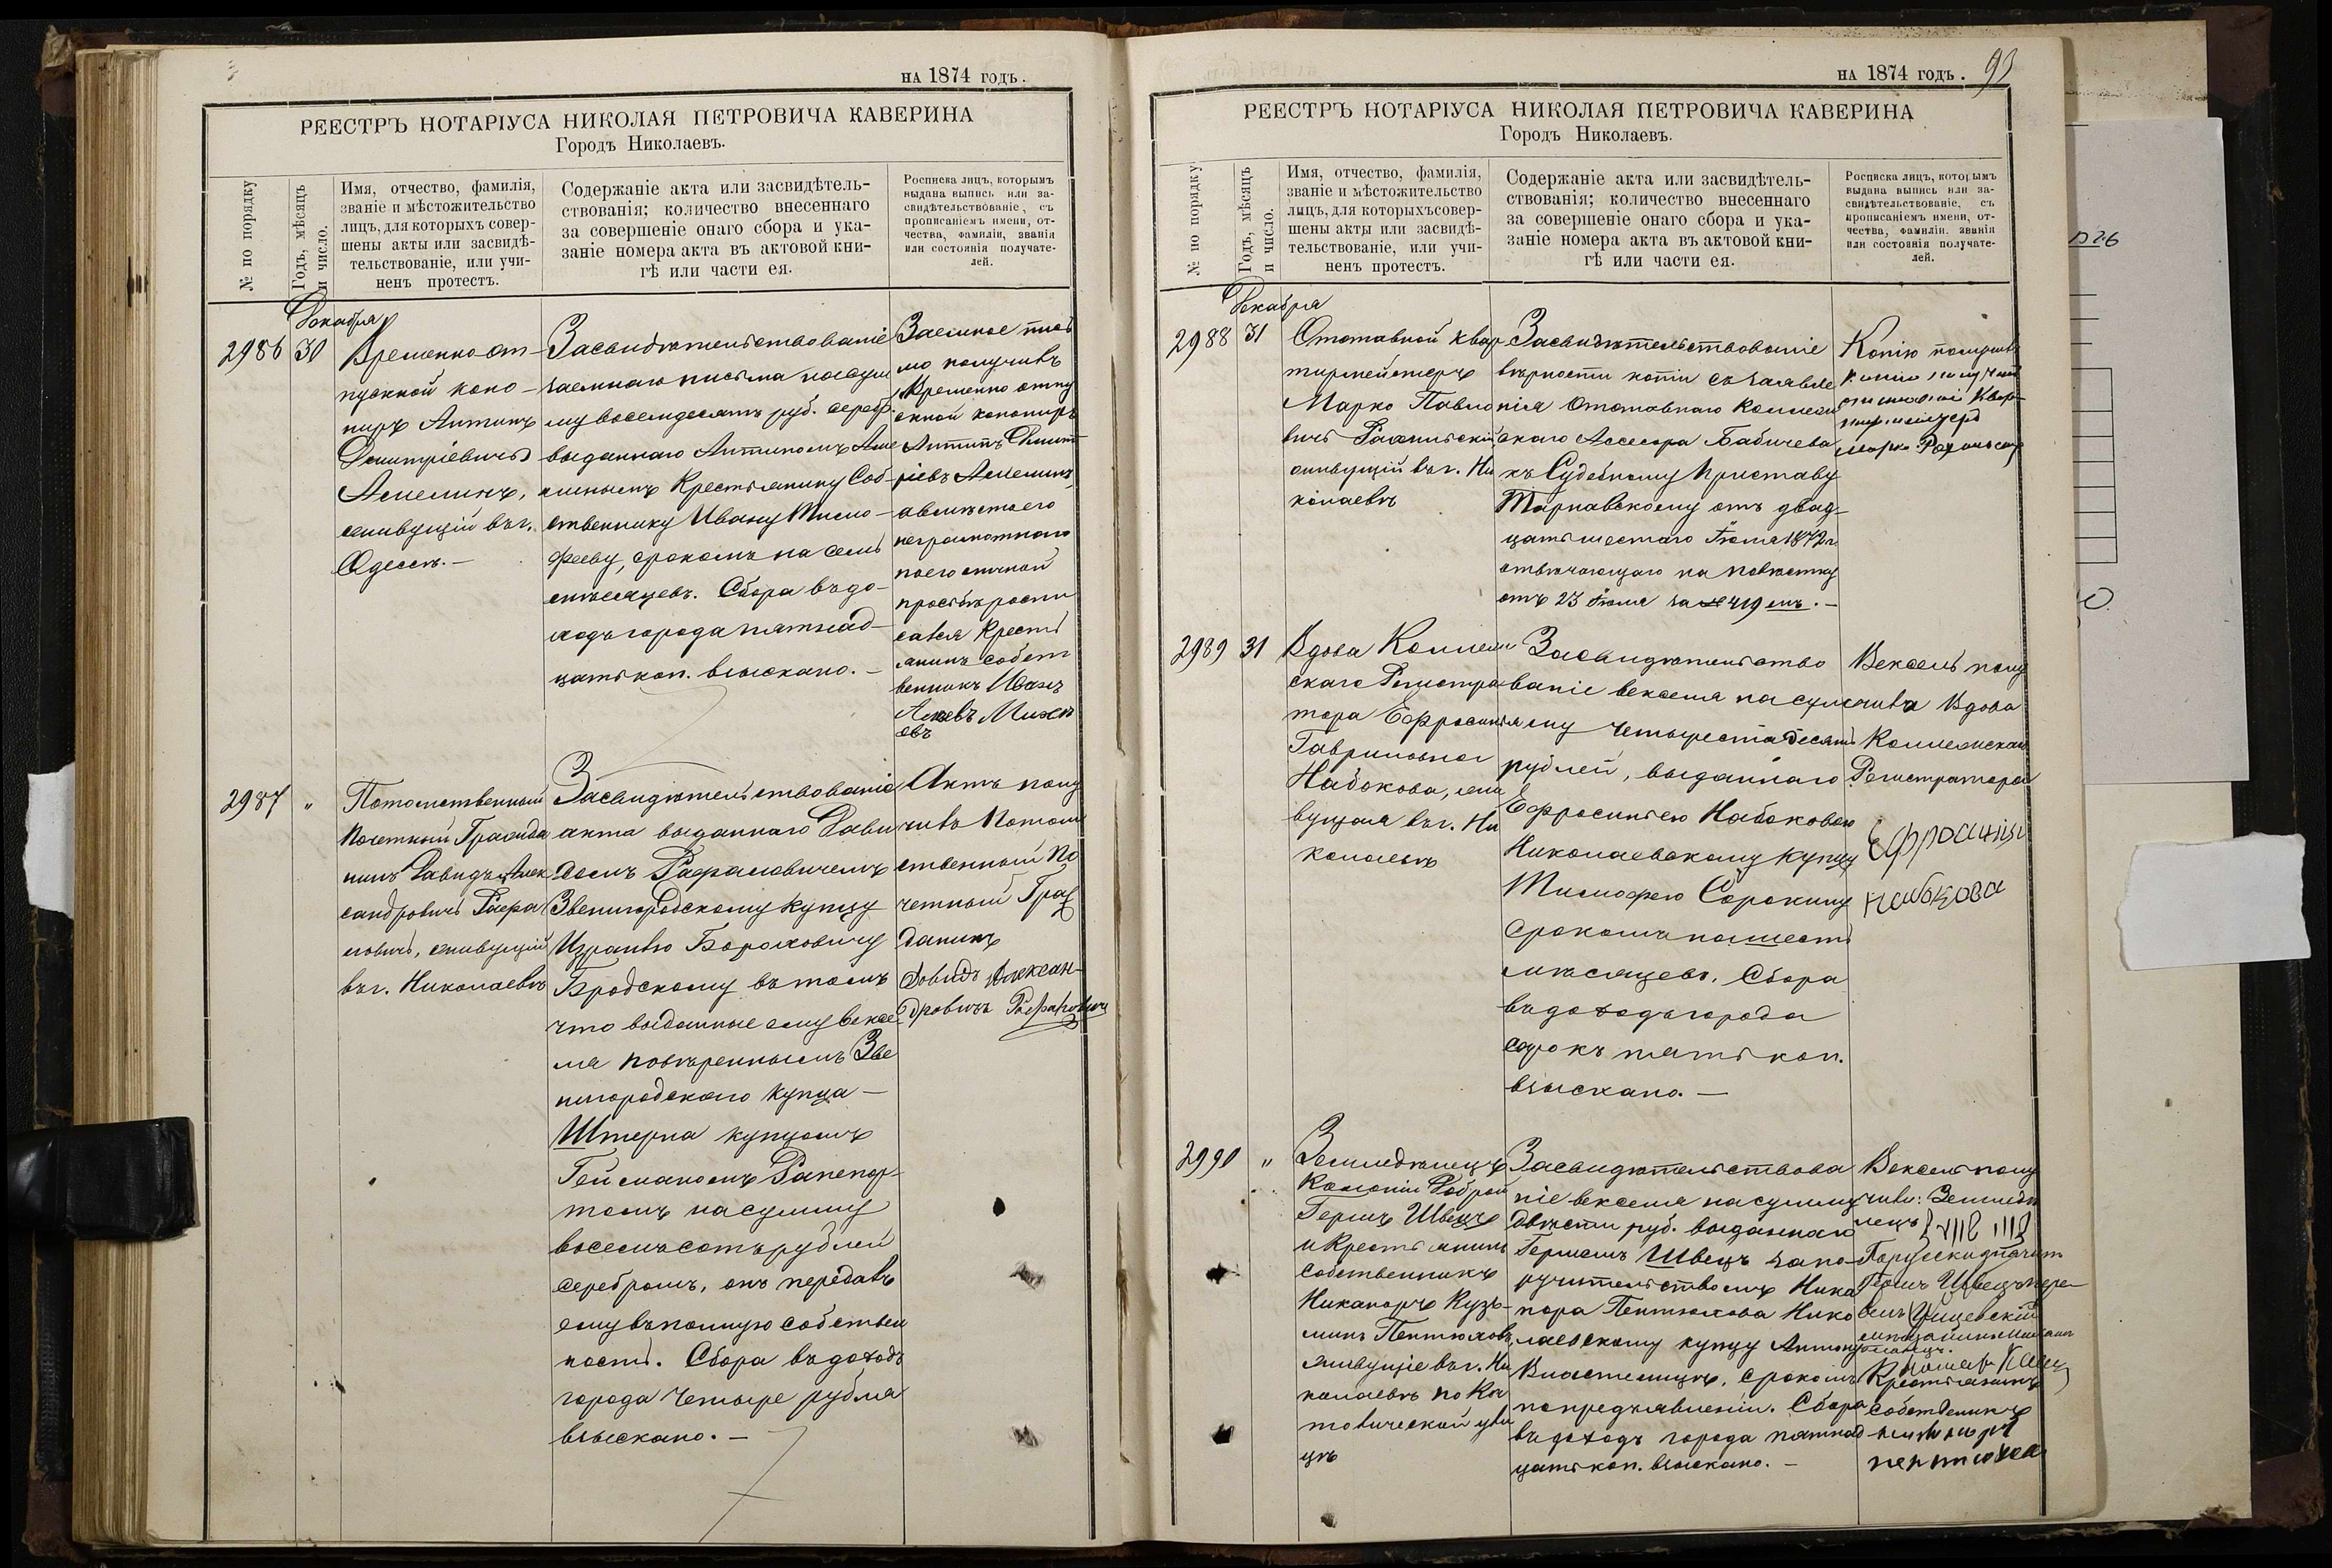 НА 1874 ГОДЪ.
РЕЕСТРЪ НОТАРІУСА НИКОЛАЯ ПЕТРОВИЧА КАВЕРИНА
Городъ Николаевъ.
№ по порядку
Годъ, мѣсяцъ
и число.
Имя, отчество, фамилія,
званіе и мѣстожительство
лицъ, для которыхъ совер-
шены акты или засвидѣ-
тельствованіе, или учи-
ненъ протестъ.
Содержаніе акта или засвидѣтель-
ствованія; количество внесеннаго
за совершеніе онаго сбора и ука-
заніе номера акта въ актовой кни-
гѣ или части ея.
Росписка лицъ, которымъ
выдана выпись или за-
свидѣтельствованіе, съ
прописаніемъ имени, от-
чества, фамиліи, званія
или состоянія получате-
лей.
Декабря
2986
30
Временно-от-
пускной коно-
пиръ Антипъ
Дмитріевичъ
живущій въ г.
Одессѣ. -
Засвидѣтельствованіе
заемнаго письма на сум
му восемдесятъ руб. серебр.
выданнаго Антипомъ
Крестьянину Соб-
ственнику Ивану
срокомъ на семь
мѣсяцевъ. Сбора въ до-
ходъ города пятнад-
цать коп. взыскано. -
Заемное пись
мо получивъ
Временно отпу
скной конопиръ
Антипъ Дмит
ріевъ
а вмѣсто его
неграмотнаго
по его личной
просьбѣ роспи
сался Кресть
янинъ собст
венникъ Иванъ
2987
"
Потомственный
Почетный Гражда
нинъ Давидъ Алек
сандровичъ Рафа
ловичъ, живущій
въ г. Николаевѣ
Засвидѣтельствованіе
акта выданнаго Дави
домъ Рафаловичемъ
Звенигородскому купцу
Израилю Бороховичу
Бродскому въ томъ
что выданные ему вексе
ля повѣреннымъ Зве
нигородскаго купца -
Штерна купцомъ
Гейсманомъ Рапепор-
томъ на сумму
восемьсотъ рублей
серебромъ, онъ передавъ
ему въ полную собствен
ность. Сбора въ доходъ
города четыре рубля
взыскано. -
Актъ полу
чивъ Потом
ственный По
четный Граж
данинъ
Давидъ Алексан-
дровичъ Рафаловичъ
НА 1874 ГОДЪ.
93
РЕЕСТРЪ НОТАРІУСА НИКОЛАЯ ПЕТРОВИЧА КАВЕРИНА
Городъ Николаевъ.
№ по порядку
Годъ, мѣсяцъ
и число.
Имя, отчество, фамилія,
званіе и мѣстожительство
лицъ, для которыхъ совер-
шены акты или засвидѣ-
тельствованіе, или учи-
ненъ протестъ.
Содержаніе акта или засвидѣтель-
ствованія; количество внесеннаго
за совершеніе онаго сбора и ука-
заніе номера акта въ актовой кни-
гѣ или части ея.
Росписка лицъ, которымъ
выдана выпись или за-
свидѣтельствованіе, съ
прописаніемъ имени, от-
чества, фамиліи, званія
или состоянія получате-
лей.
Декабря
2988
31
Отставной квар-
тирмейстеръ
Марко Павло
вичъ
живущій въ г. Ни
колаевѣ
Засвидѣтельствованіе
вѣрности копіи съ заявле
нія Отставнаго Коллеж
скаго Ассесора Бабичева
къ Судебному Приставу
Тарнавскому отъ двад-
цать шестаго Іюля 1872 г.
отвѣчающаго на повѣстку
отъ 23 Іюля за № 419 мъ. -
Копію получивъ
Копію получилъ
отставной Квар-
тирмистръ
Марко
2989
31
Вдова Коллеж
скаго Регистра-
тора Ефросинія
Гавриловна
Набокова, жи
вущая въ г. Ни
колаевѣ
Засвидѣтельство
ваніе векселя на сум
му четыреста десять
рублей, выданнаго
Ефросиніею Набоковою
Николаевскому купцу
Тимофею Сорокину
срокомъ на шесть
мѣсяцевъ. Сбора
въ доходъ города
сорокъ пять коп.
взыскано. -
Вексель полу
чивъ Вдова
Коллежскаго
Регистратора
Ефросинія
Набокова
2990
"
Земледѣлецъ
Колоніи Доброй
Гершъ Швецъ
и Крестьянинъ
Собственникъ
Никаноръ Кузь-
минъ Пентюховъ
живущіе въ г. Ни
колаевѣ по Ка
толической ули
цѣ
Засвидѣтельствова
ніе векселя на сумму
двѣсти руб. выданнаго
Гершемъ Швецъ за по-
ручительствомъ Ника
нора Пентюхова Нико
лаевскому купцу Антону
срокомъ
по предъявленіи. Сбора
въ доходъ города пятнад
цать коп. взыскано. -
Вексель полу
чивъ: Земледѣ
лецъ
По русски значитъ
Гершъ Швецъ пере-
велъ
Крестьянинъ
Собственникъ
Никаноръ
Пентюховъ